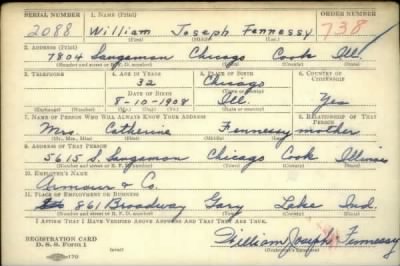 SERIAL NUMBER 1. NAME (Print) ORDER NUMBER
2088 William Joseph Fennessy 738
(First) (Middle) (Last)
2. ADDRESS (Print)
7804 Sangamon Chicago Cook Ill.
(Number and street or R. F. D. number) (Town) (County) (State)
3. TELEPHONE 4. AGE IN YEARS 5. PLACE OF BIRTH 6. COUNTRY OF CITIZENSHIP
32 Chicago
DATE OF BIRTH
8-10-1908 Ill. Yes
(Exchange) (Number) (Mo.) (Day) (Yr.) (State or country)
7. NAME OF PERSON WHO WILL ALWAYS KNOW YOUR ADDRESS 8. RELATIONSHIP OF THAT PERSON
Mrs. Catherine Fennessy mother
(Mr., Mrs., Miss) (First) (Middle) (Last)
9. ADDRESS OF THAT PERSON
5615 S. Sangamon Chicago Cook Illinois
(Number and street or R. F. D. number) (Town) (County) (State)
10. EMPLOYER'S NAME
Armour & Co.
11. PLACE OF EMPLOYMENT OR BUSINESS
861 Broadway Gary Lake Ind.
(Number and street or R. F. D. number) (Town) (County) (State)
I AFFIRM THAT I HAVE VERIFIED ABOVE ANSWERS AND THAT THEY ARE TRUE.
REGISTRATION CARD
D. S. S. Form 1 (over) William Joseph Fennessy